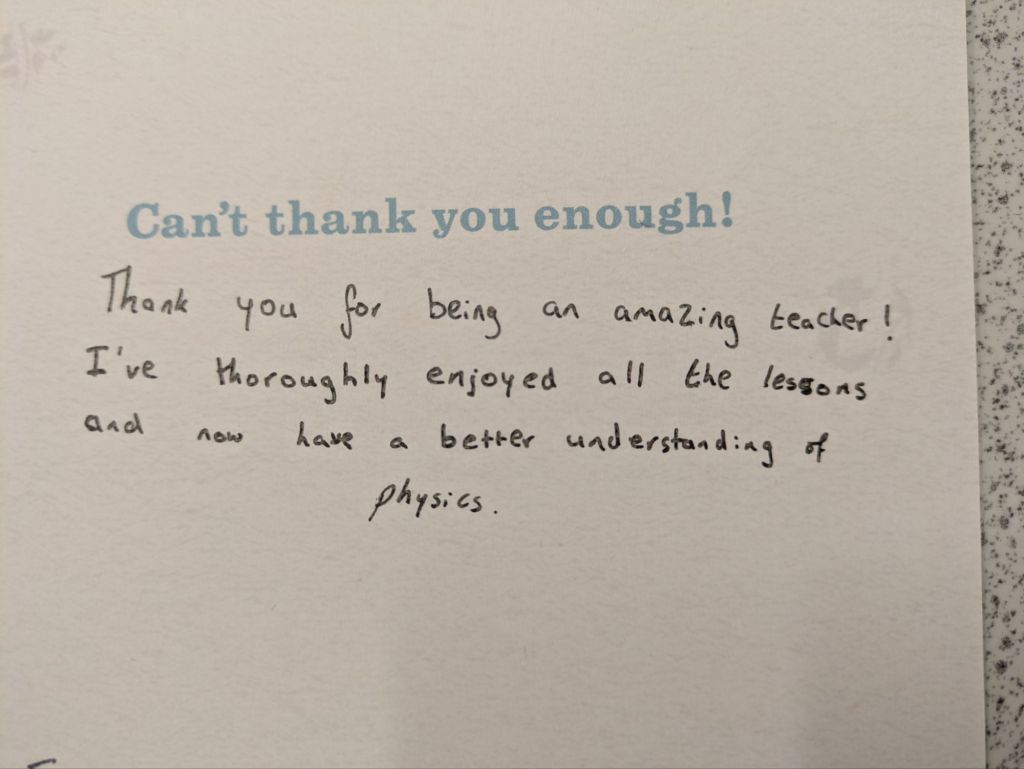 Can't thank you enough!
Thank you for being an amazing teacher!
I've thoroughly enjoyed all the lessons
and now have a better understanding of
physics.